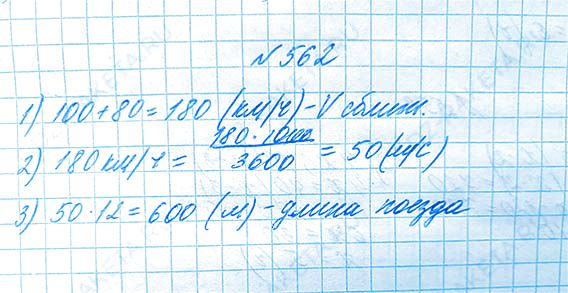 № 562
1) 100 + 80 = 180 (км/ч) - V сближ.
2) 180 км/ч = 180 · 1000 / 3600 = 50 (м/с)
3) 50 · 12 = 600 (м) - длина поезда